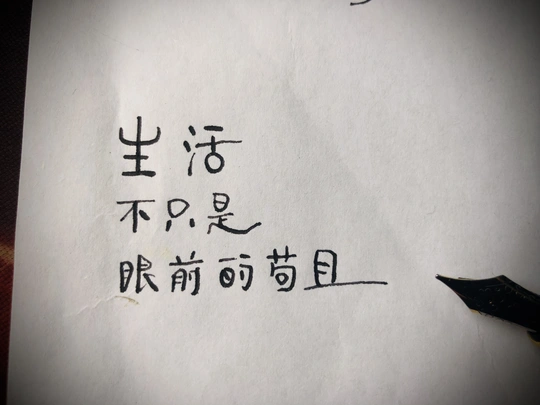 生活
不只是
眼前的苟且